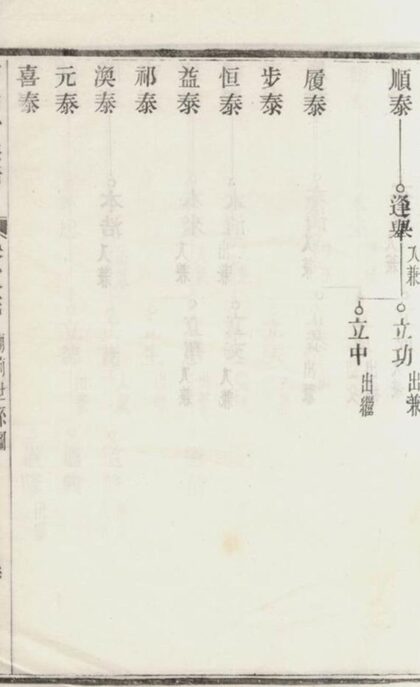 順泰
逢舉 入兼
立功 出兼
立中 出繼
履泰
步泰
恒泰
益泰
祁泰
渙泰
元泰
喜泰
世系圖